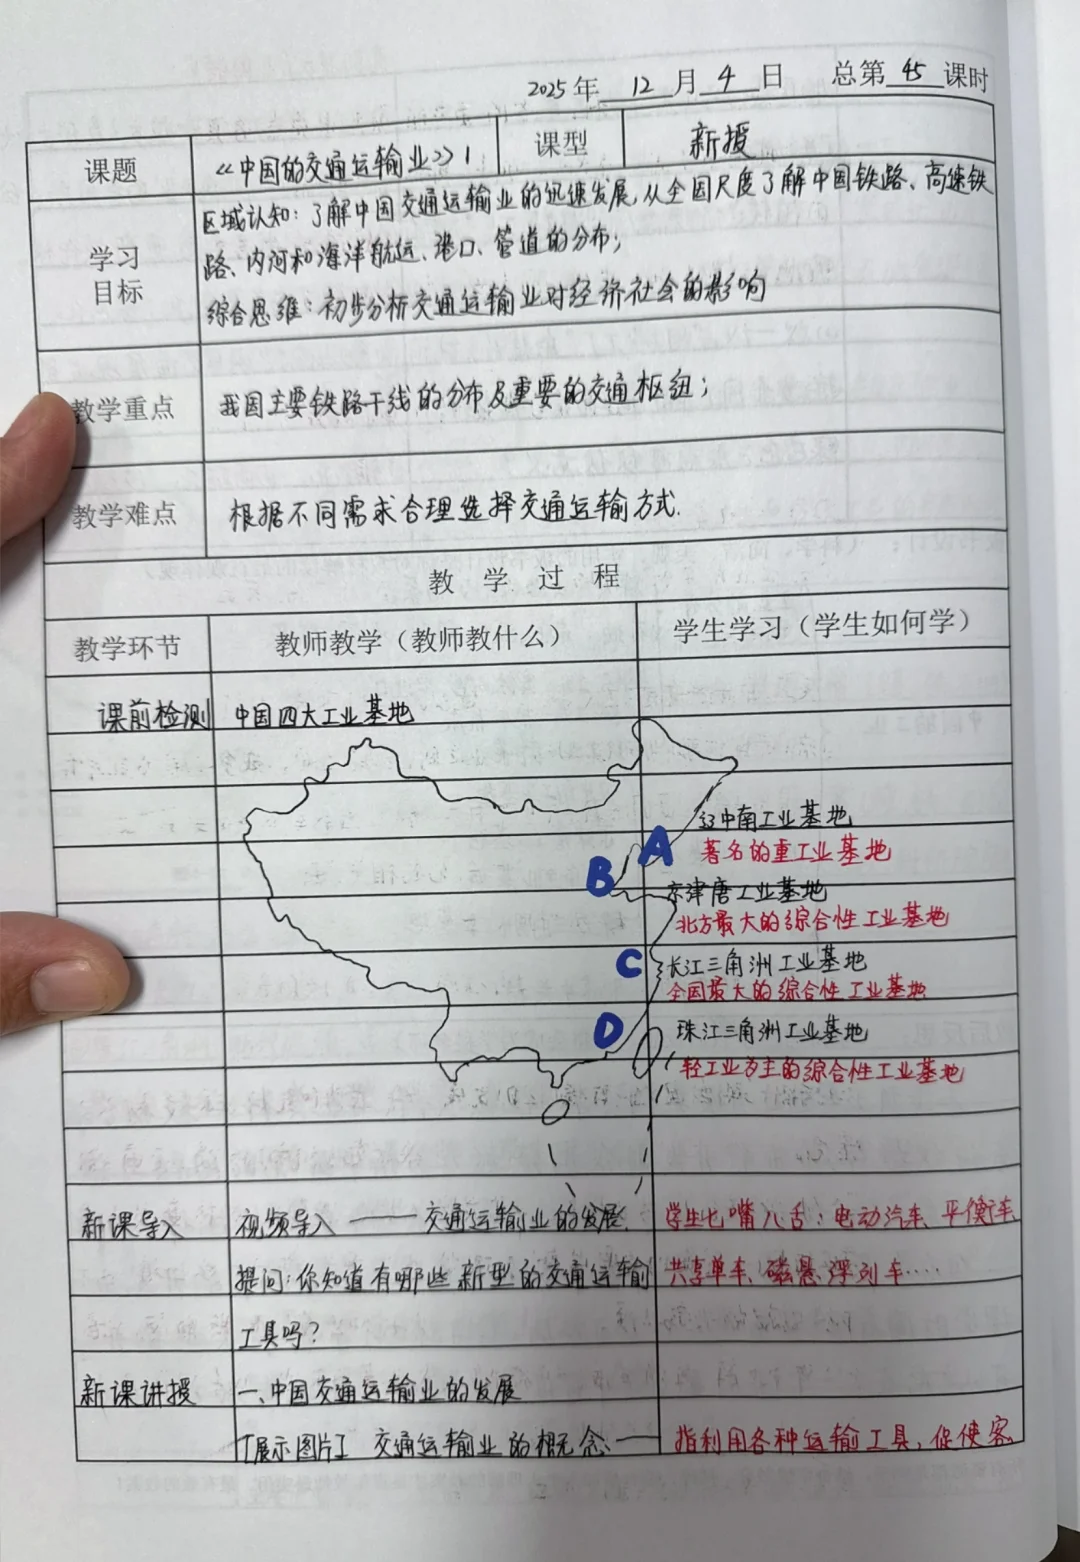 2025年 12 月 4 日 总第 45 课时
课题 《中国的交通运输业》1 课型 新授
学习目标
区域认知：了解中国交通运输业的迅速发展，从全国尺度了解中国铁路、高速铁
路、内河和海洋航运、港口、管道的分布；
综合思维：初步分析交通运输业对经济社会的影响
教学重点 我国主要铁路干线的分布及重要的交通枢纽；
教学难点 根据不同需求合理选择交通运输方式.
教 学 过 程
教学环节 教师教学（教师教什么） 学生学习（学生如何学）
课前检测 中国四大工业基地
辽中南工业基地
A 著名的重工业基地
B 京津唐工业基地
北方最大的综合性工业基地
C 长江三角洲工业基地
全国最大的综合性工业基地
D 珠江三角洲工业基地
轻工业为主的综合性工业基地
新课导入 视频导入 —— 交通运输业的发展. 学生七嘴八舌：电动汽车、平衡车、
提问：你知道有哪些新型的交通运输 共享单车、磁悬浮列车……
工具吗？
新课讲授 一、中国交通运输业的发展
[展示图片] 交通运输业的概念：— 指利用各种运输工具，促使客